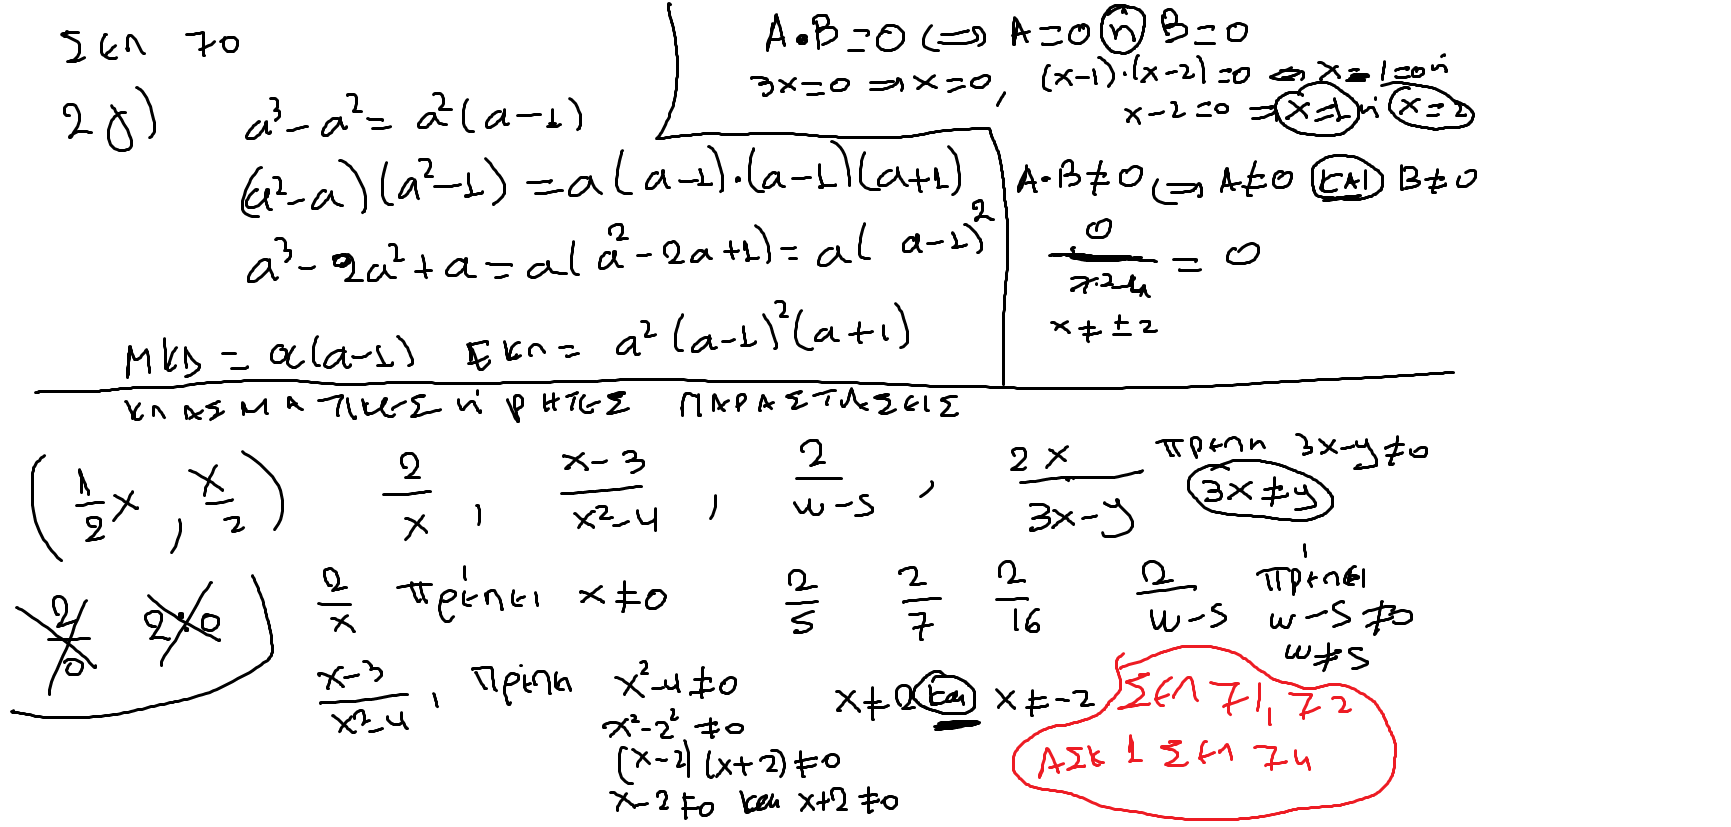 Σελ 70
2γ) a³-a²= a²(a-1)
(a²-a)(a²-1)=a(a-1)·(a-1)(a+1)
a³-2a²+a=a(a²-2a+1)=a(a-1)²
ΜΚΔ = α(a-1) ΕΚΠ= a²(a-1)²(a+1)
A·B=0 ⟺ A=0 ή B=0
3x=0 ⇒ x=0, (x-1)·(x-2)=0 ⟺ x-1=0 ή
x-2=0 ⇒ x=1 ή x=2
A·B≠0 ⟺ A≠0 ΚΑΙ B≠0
0/(x²-4) = 0
x≠±2
ΚΛΑΣΜΑΤΙΚΕΣ ή ΡΗΤΕΣ ΠΑΡΑΣΤΑΣΕΙΣ
(1/2 x, x/2) 2/x, (x-3)/(x²-4), 2/(w-5), 2x/(3x-y) πρέπει 3x-y≠0
3x≠y
2/0 2:0
2/x πρέπει x≠0 2/5 2/7 2/16 2/(w-5) πρέπει
w-5≠0
w≠5
(x-3)/(x²-4), πρέπει x²-4≠0 x≠2 και x≠-2
x²-2²≠0
(x-2)(x+2)≠0
x-2≠0 και x+2≠0
Σελ 71, 72
ΑΣΚ 1 Σελ 74